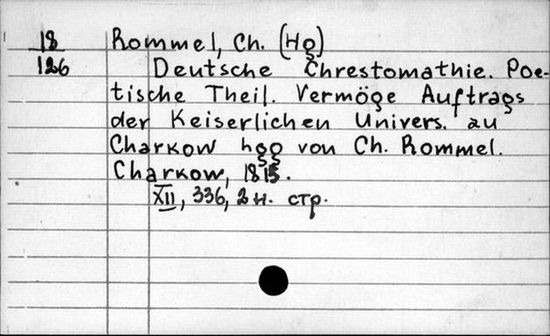 18 Rommel, Ch. (Hg)
126 Deutsche Chrestomathie. Poe-
tische Theil. Vermöge Auftrags
der Keiserlichen Univers. au
Charkow hgg von Ch. Rommel.
Charkow, 1815.
XII, 336, 2 н. стр.